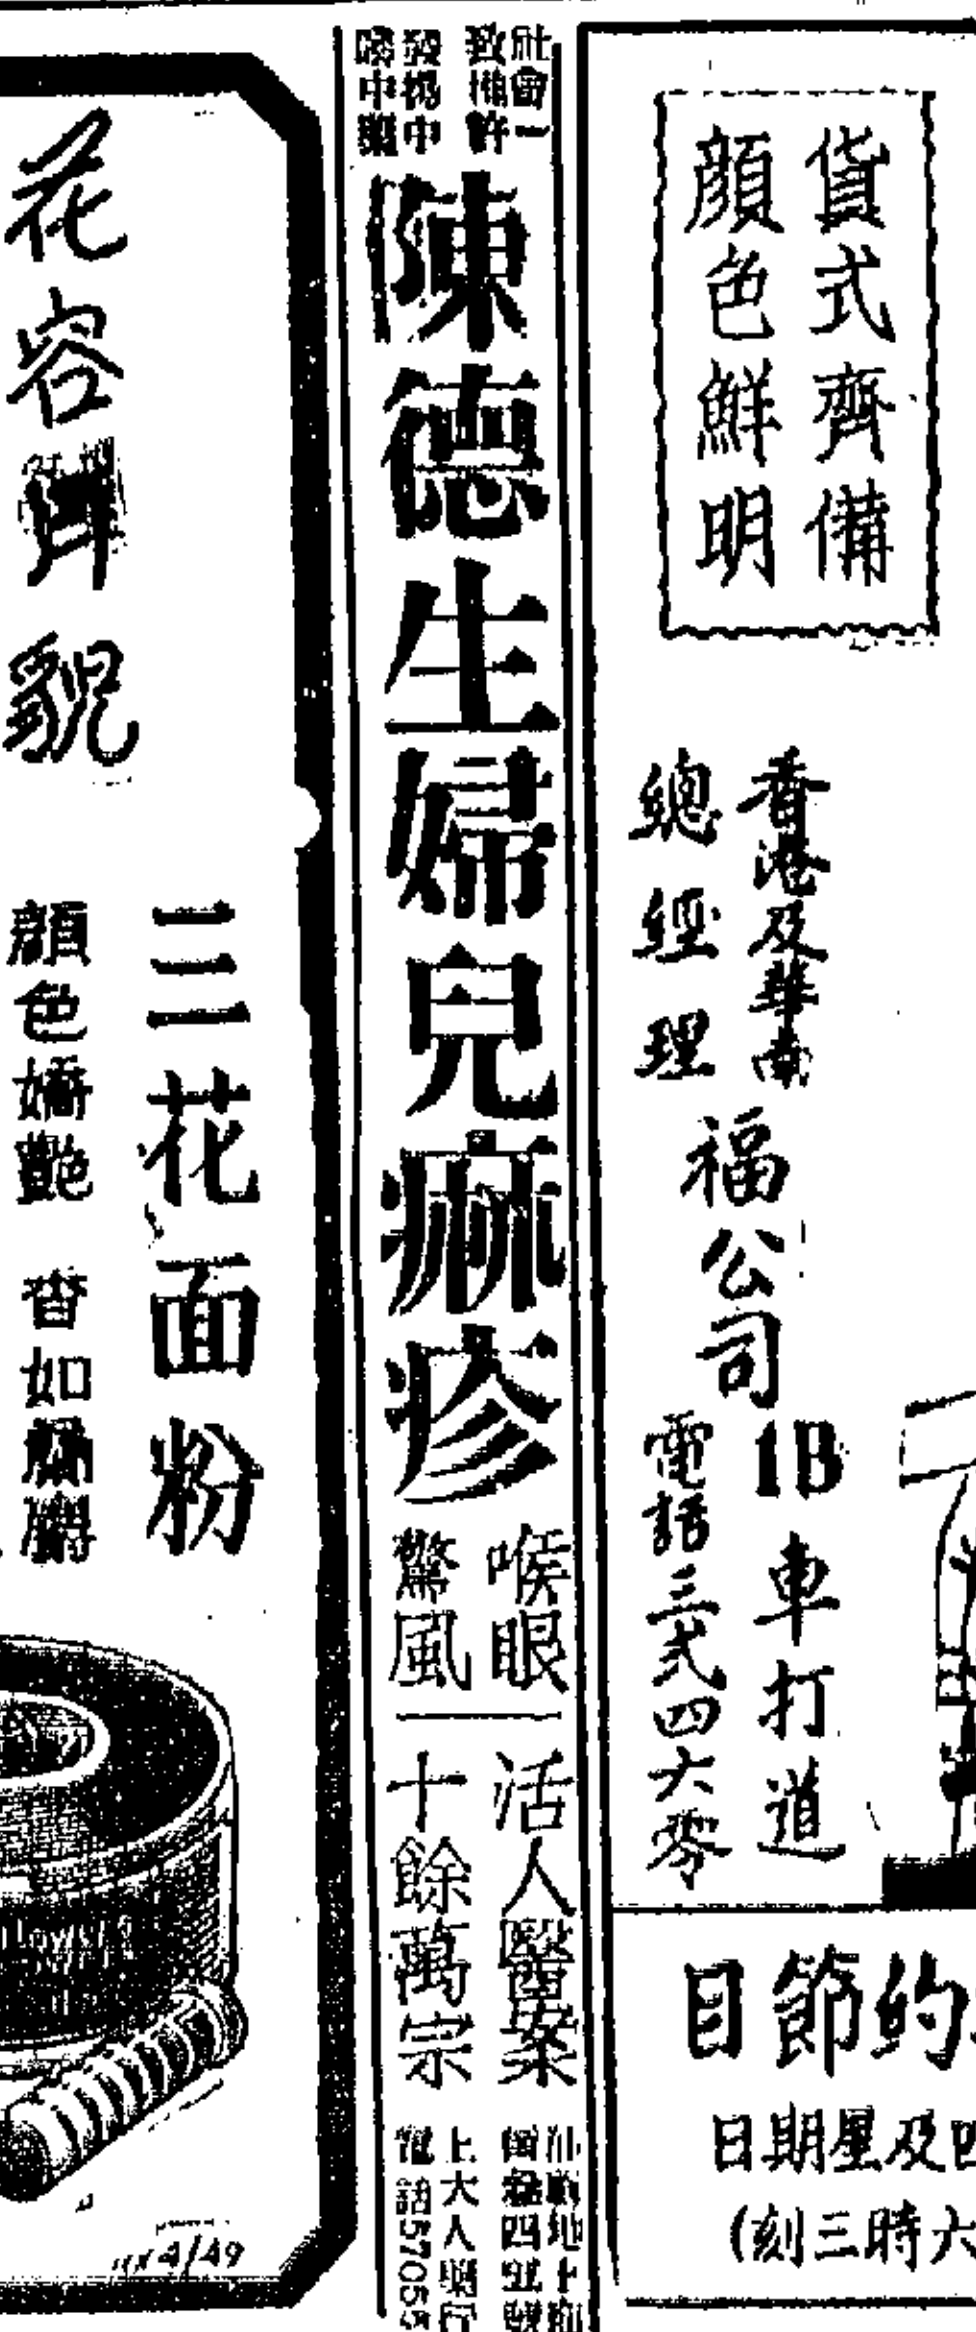 貨式齊備
顏色鮮明
香港及華南
總經理
福公司
1B車打道
電話三弍四六零
目節約
日期星及四
(刻三時六
社會一
致推許
發揚中
陳德生婦兒痲疹
喉眼
驚風
活人醫案
十餘萬宗
上大人藥行
電話57055
花容
貌
三花面粉
顏色嬌艷
香如
4/49